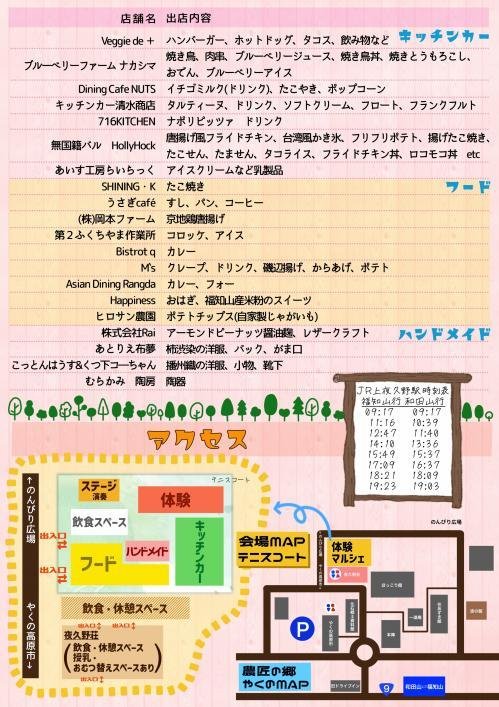 店舗名 出店内容
キッチンカー
Veggie de + ハンバーガー、ホットドッグ、タコス、飲み物など
ブルーベリーファーム ナカシマ 焼き鳥、肉串、ブルーベリージュース、焼き鳥丼、焼きとうもろこし、
おでん、ブルーベリーアイス
Dining Cafe NUTS イチゴミルク(ドリンク)、たこやき、ポップコーン
キッチンカー清水商店 タルティーヌ、ドリンク、ソフトクリーム、フロート、フランクフルト
716KITCHEN ナポリピッツァ ドリンク
無国籍バル HollyHock 唐揚げ風フライドチキン、台湾風かき氷、フリフリポテト、揚げたこ焼き、
たこせん、たません、タコライス、フライドチキン丼、ロコモコ丼 etc
あいす工房らいらっく アイスクリームなど乳製品
フード
SHINING・K たこ焼き
うさぎcafé すし、パン、コーヒー
(株)岡本ファーム 京地鶏唐揚げ
第2ふくちやま作業所 コロッケ、アイス
Bistrot q カレー
M's クレープ、ドリンク、磯辺揚げ、からあげ、ポテト
Asian Dining Rangda カレー、フォー
Happiness おはぎ、福知山産米粉のスイーツ
ヒロサン農園 ポテトチップス(自家製じゃがいも)
ハンドメイド
株式会社Rai アーモンドピーナッツ醤油麹、レザークラフト
あとりえ布夢 柿渋染の洋服、バック、がま口
こっとんはうす&くつ下コーちゃん 播州織の洋服、小物、靴下
むらかみ 陶房 陶器
JR上夜久野駅時刻表
福知山行 和田山行
09:17 09:17
11:16 10:39
12:47 11:40
14:10 13:36
15:49 15:37
17:09 16:37
18:21 18:09
19:23 19:03
アクセス
テニスコート
ステージ
演奏
体験
飲食スペース
キッチンカー
ハンドメイド
フード
出入口
出入口
↑のんびり広場
やくの高原市↓
飲食・休憩スペース
出入口 出入口
夜久野荘
(飲食・休憩スペース
授乳・
おむつ替えスペースあり)
出入口
会場MAP
テニスコート
体験
マルシェ
のんびり広場
ほっこり館
やくの高原市
一道庵
本陣
P
農匠の郷
やくのMAP
旧ドライブイン
9
和田山⇔福知山